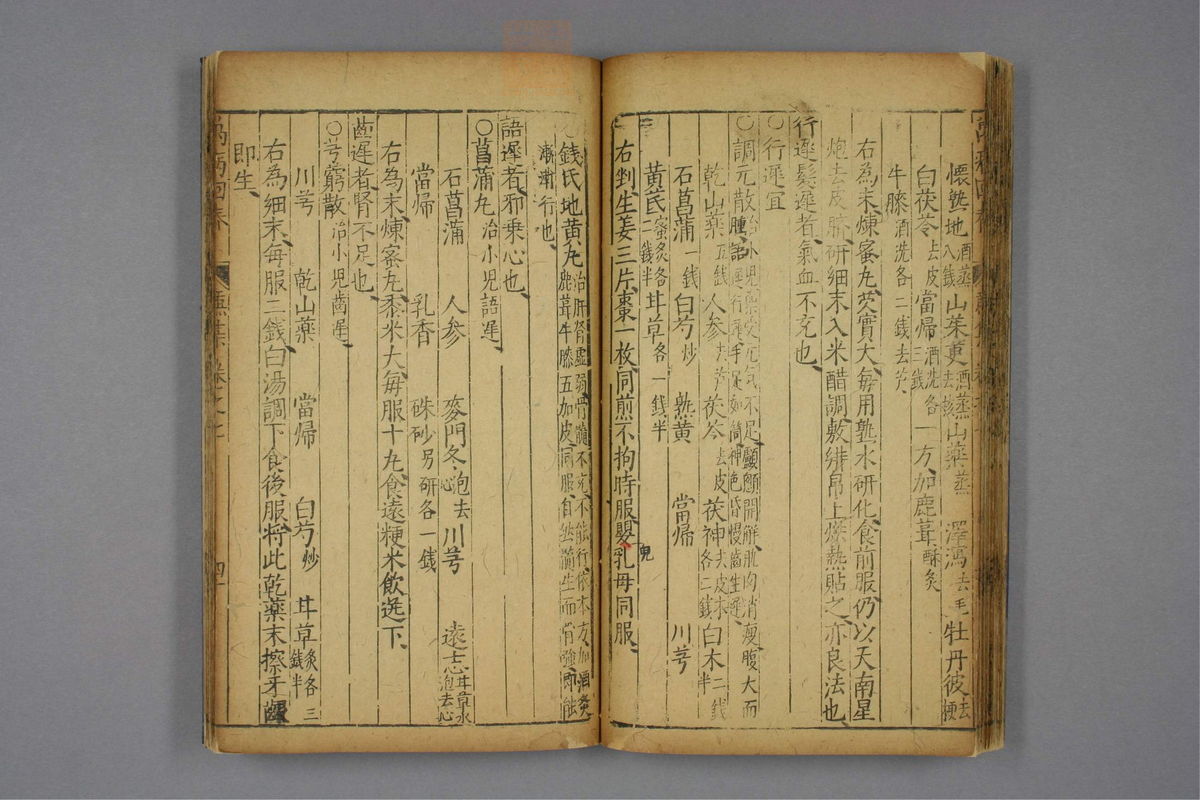 懷熟地酒蒸八錢山茱萸酒蒸去核山藥蒸 澤瀉去毛牡丹皮去梗
白茯苓去皮當歸酒洗各三錢一方加鹿茸酥炙
牛膝酒洗各二錢去芦
右為末煉蜜丸芡實大每用熟水研化食前服仍以天南星
炮去皮臍研細末入米醋調敷緋帛上烘熱貼之亦良法也
行遲髮遲者氣血不充也
○行遲宜
○調元散治小兒稟受元氣不足顱顖開解肌肉消瘦腹大而腫語遲行遲手足如筒神色昏慢齒生遲
乾山藥五錢人參去芦茯苓去皮茯神去皮木各二錢白木二錢半
石菖蒲一錢白芍炒 熟黃 當歸 川芎
黃茋蜜炙各二錢半甘草各一錢半
右剉生姜三片棗一枚同煎不拘時服嬰兒乳母同服
○錢氏地黃丸治肝腎虛弱骨髓不充不能行依本方加鹿茸牛膝五加皮同服自然髓生而骨強即能
漸漸行也
語遲者邪乘心也
○菖蒲丸治小兒語遲
石菖蒲 人參 麥門冬泡去心川芎 遠志甘草水泡去心
當歸 乳香 硃砂另研各一錢
右為末煉蜜丸黍米大每服十丸食遠粳米飲送下
齒遲者腎不足也
○芎窮散治小兒齒遲
川芎 乾山藥 當歸 白芍炒 甘草炙各三錢半
右為細末每服二錢白湯調下食後服將此乾藥末擦牙齦
即生